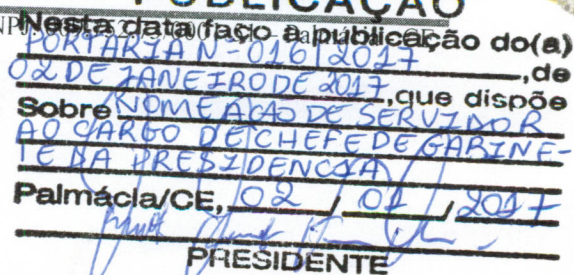 PUBLICAÇÃO
Nesta data faço a publicação do(a)
PORTARIA N-016/2017, de
02 DE JANEIRO DE 2017, que dispõe
Sobre NOMEAÇÃO DE SERVIDOR
AO CARGO DE CHEFE DE GABINE-
TE DA PRESIDENCIA
Palmácia/CE, 02 / 01 / 2017
PRESIDENTE